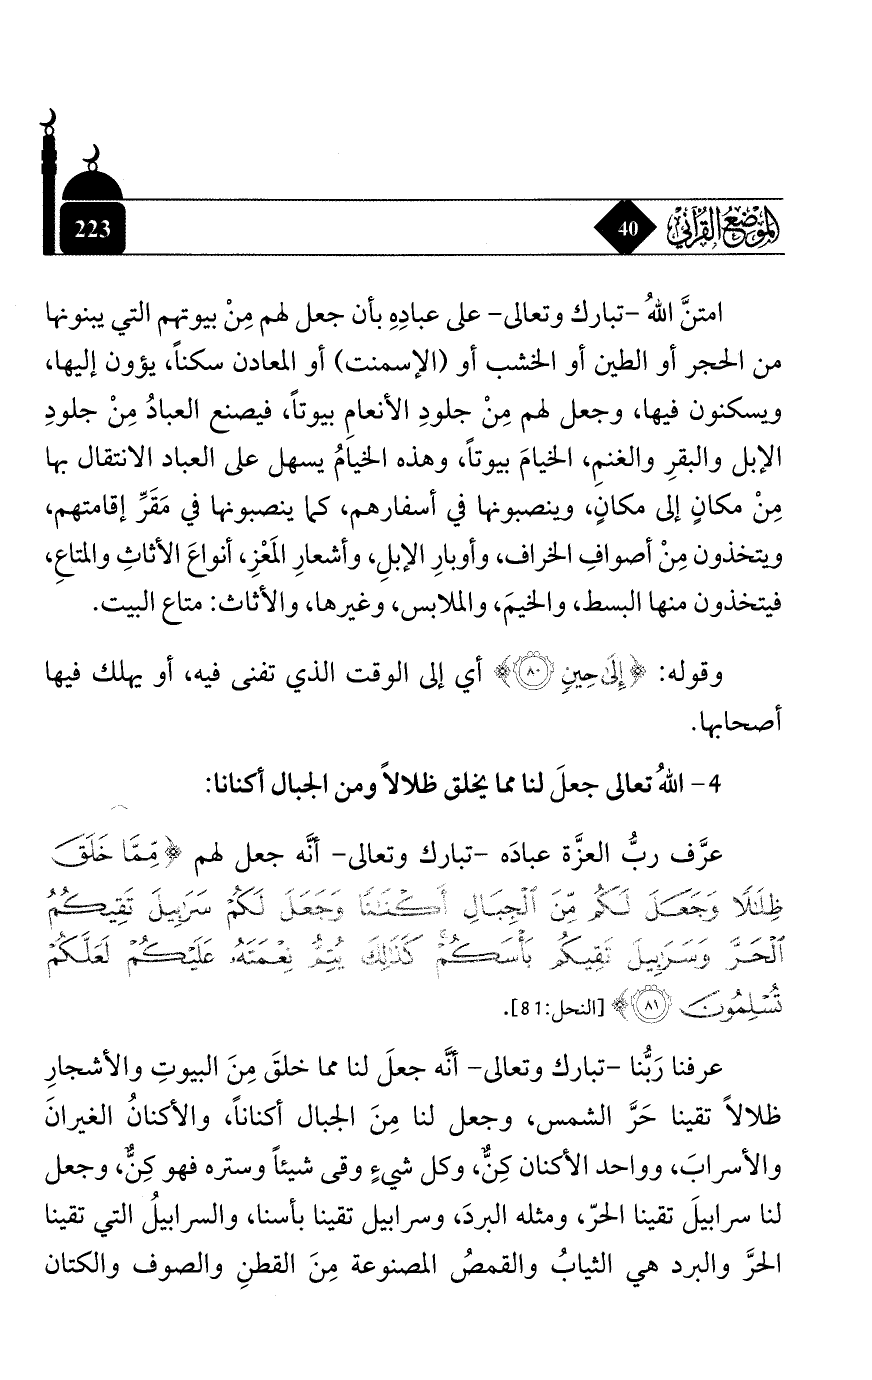 الموضع القرآني 40 223
امتنَّ اللهُ -تبارك وتعالى- على عبادِهِ بأن جعل لهم مِنْ بيوتهم التي يبنونها
من الحجر أو الطين أو الخشب أو (الإسمنت) أو المعادن سكناً، يؤون إليها،
ويسكنون فيها، وجعل لهم مِنْ جلودِ الأنعامِ بيوتاً، فيصنع العبادُ مِنْ جلودِ
الإبل والبقرِ والغنمِ، الخيامَ بيوتاً، وهذه الخيامُ يسهل على العباد الانتقال بها
مِنْ مكانٍ إلى مكانٍ، وينصبونها في أسفارهم، كما ينصبونها في مَقَرِّ إقامتهم،
ويتخذون مِنْ أصوافِ الخراف، وأوبارِ الإبلِ، وأشعارِ المَعْزِ، أنواعَ الأثاثِ والمتاعِ،
فيتخذون منها البسط، والخيمَ، والملابس، وغيرها، والأثاث: متاع البيت.
وقوله: ﴿إِلَىٰ حِينٍ ٨٠﴾ أي إلى الوقت الذي تفنى فيه، أو يهلك فيها
أصحابها.
4- اللهُ تعالى جعلَ لنا مما يخلق ظلالاً ومن الجبال أكنانا:
عرَّف ربُّ العزَّة عبادَه -تبارك وتعالى- أنَّه جعل لهم ﴿مِّمَّا خَلَقَ
ظِلَٰلًا وَجَعَلَ لَكُم مِّنَ ٱلْجِبَالِ أَكْنَٰنًا وَجَعَلَ لَكُمْ سَرَٰبِيلَ تَقِيكُمُ
ٱلْحَرَّ وَسَرَٰبِيلَ تَقِيكُم بَأْسَكُمْ ۚ كَذَٰلِكَ يُتِمُّ نِعْمَتَهُۥ عَلَيْكُمْ لَعَلَّكُمْ
تُسْلِمُونَ ٨١﴾ [النحل:81].
عرفنا رَبُّنا -تبارك وتعالى- أنَّه جعلَ لنا مما خلقَ مِنَ البيوتِ والأشجارِ
ظلالاً تقينا حَرَّ الشمس، وجعل لنا مِنَ الجبال أكناناً، والأكنانُ الغيرانَ
والأسرابَ، وواحد الأكنان كِنٌّ، وكل شيءٍ وقى شيئاً وستره فهو كِنٌّ، وجعل
لنا سرابيلَ تقينا الحرّ، ومثله البردَ، وسرابيل تقينا بأسنا، والسرابيلُ التي تقينا
الحرَّ والبرد هي الثيابُ والقمصُ المصنوعة مِنَ القطنِ والصوف والكتان